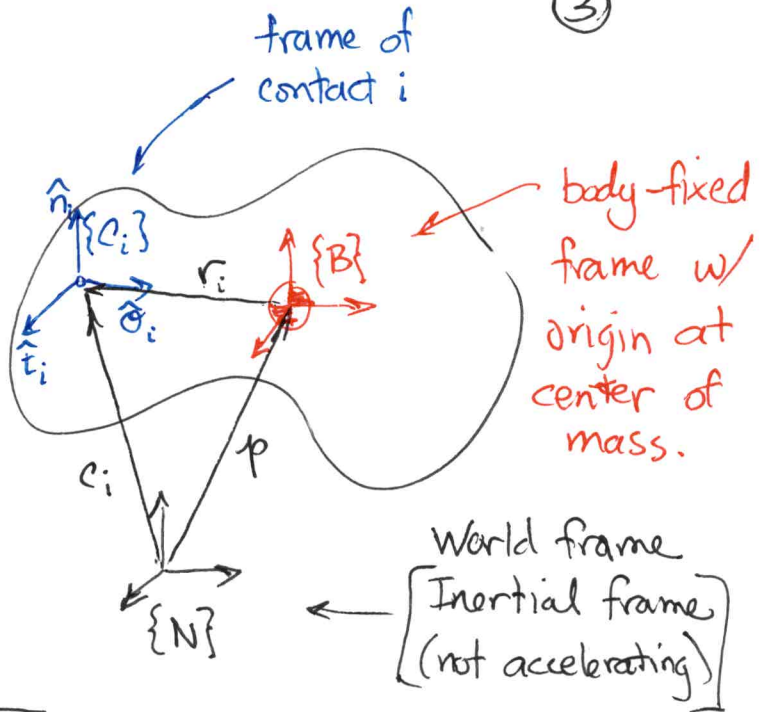 ③
frame of
contact i
n̂i
{Ci}
ri
{B}
ôi
t̂i
body-fixed
frame w/
origin at
center of
mass.
ci
p
World frame
Inertial frame
(not accelerating)
{N}